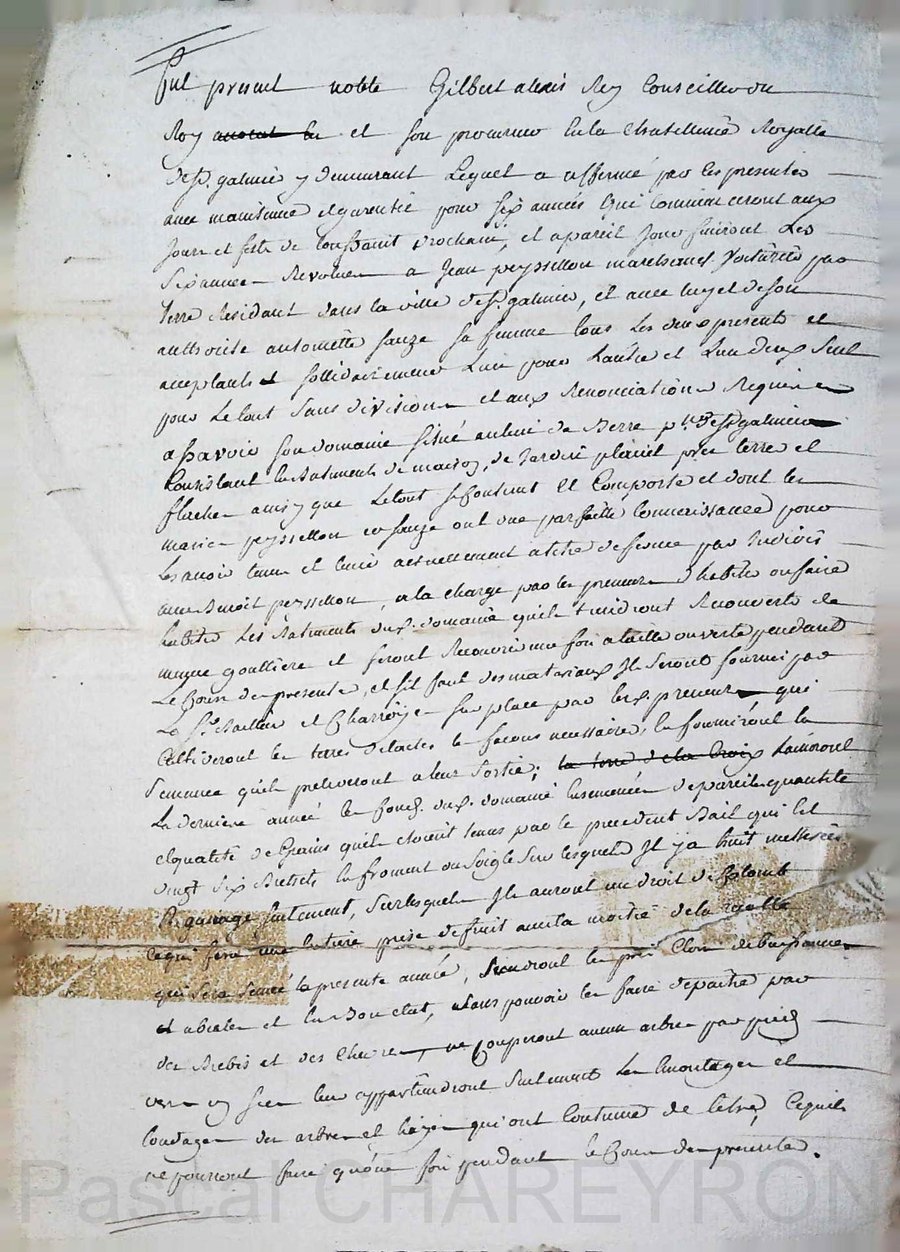 Fut present noble Gilbert alexis Rey Conseiller du
Roy avocat du et son procureur en la Chatellenie Royalle
de St. galmier y demeurant Lequel a affermé par les presentes
avec maintenue et garentie pour six années qui commenceront aux
jour et feste de toussaint prochain, et a pareil jour finiront Les
six années Revolues a Jean peyssellon marchand voiturier par
terre Residant dans la ville de St. galmier, et avec luy et de son
authorité antoinette sauze sa femme tous les deux presents et
acceptants et sollidairement L'un pour L'autre et L'un d'eux seul
pour Le tout sans division et aux Renonciations Requises
a sçavoir son domaine situé au lieu de
Consistant en batiments de maison, de jardin prez terre et
ainsy que Le tout se contient et Comporte et dont les
mariés peyssellon et sauze ont une parfaitte connoissance pour
Les avoir tenu et tenir actuellement a titre de ferme par indivis
avec Benoit peyssellon, a la charge par les preneurs d'habiter ou faire
habiter Les Batiments du d. domaine qu'ils tiendront Recouverts de
gouttiere et feront Recouvrir une fois a taille ouverte pendant
Le Cours des presentes, et s'il faut des materiaux Ils seront fournis par
Le Sr. Bailleur et Charroyés sur place par les d. preneurs qui
Cultiveront les terres de toutes les façons necessaires, en fourniront la
semence qu'ils preleveront a leur sortie; la terre de la Croix Laisseront
La derniere année les fonds du d. domaine ensemencés de pareille quantité
et qualité de Grains qu'ils etoient tenus par le precedent Bail qui est
vingt six Bichets en froment ou soigle sur lesquels Il y a huit
seulement, sur lesquels Ils auront un droit de Colomb
ce qui fera une entiere prise de fruit avec la moitié de la
qui sera semée la presente année, tiendront les prés Clos de buissonnes
et en Bon etat, sans pouvoir les faire depaitre par
des Brebis et des Chevres, ne Couperont aucun arbre par pied
leur appartiendront seulement Les emontages et
tondages des arbres et hayes qui ont Coutume de l'etre, Ce qu'ils
ne pourront faire qu'une fois pendant le Cours des presentes.
Pascal CHAREYRON